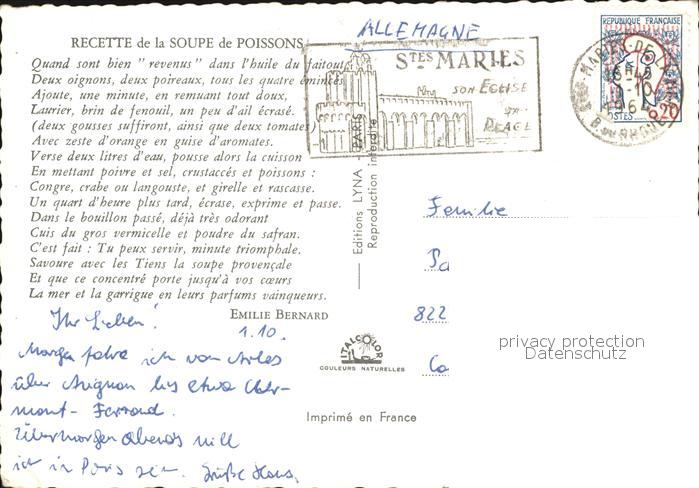 ALLEMAGNE
RECETTE de la SOUPE de POISSONS
Quand sont bien " revenus " dans l'huile du faitout
Deux oignons, deux poireaux, tous les quatre émincés
Ajoute, une minute, en remuant tout doux,
Laurier, brin de fenouil, un peu d'ail écrasé.
(deux gousses suffiront, ainsi que deux tomates)
Avec zeste d'orange en guise d'aromates.
Verse deux litres d'eau, pousse alors la cuisson
En mettant poivre et sel, crustaccés et poissons :
Congre, crabe ou langouste, et girelle et rascasse.
Un quart d'heure plus tard, écrase, exprime et passe.
Dans le bouillon passé, déjà très odorant
Cuis du gros vermicelle et poudre du safran.
C'est fait : Tu peux servir, minute triomphale.
Savoure avec les Tiens la soupe provençale
Et que ce concentré porte jusqu'à vos cœurs
La mer et la garrigue en leurs parfums vainqueurs.
EMILIE BERNARD
Ihr Lieben!
1.10.
Morgen fahre ich von Arles
über Avignon bis etwa Cler-
mont-Ferrand.
Übermorgen abends will
ich in Paris sein. Grüße Hans.
STES MARIES
SON EGLISE
SA
PLAGE
REPUBLIQUE FRANÇAISE
MARIES-DE-LA-
-10
1964
B. DU RHONE
0,20
POSTES
Editions LYNA - PARIS
Reproduction interdite
Familie
Pa
822
Co
ITALCOLOR
COULEURS NATURELLES
Imprimé en France
privacy protection
Datenschutz